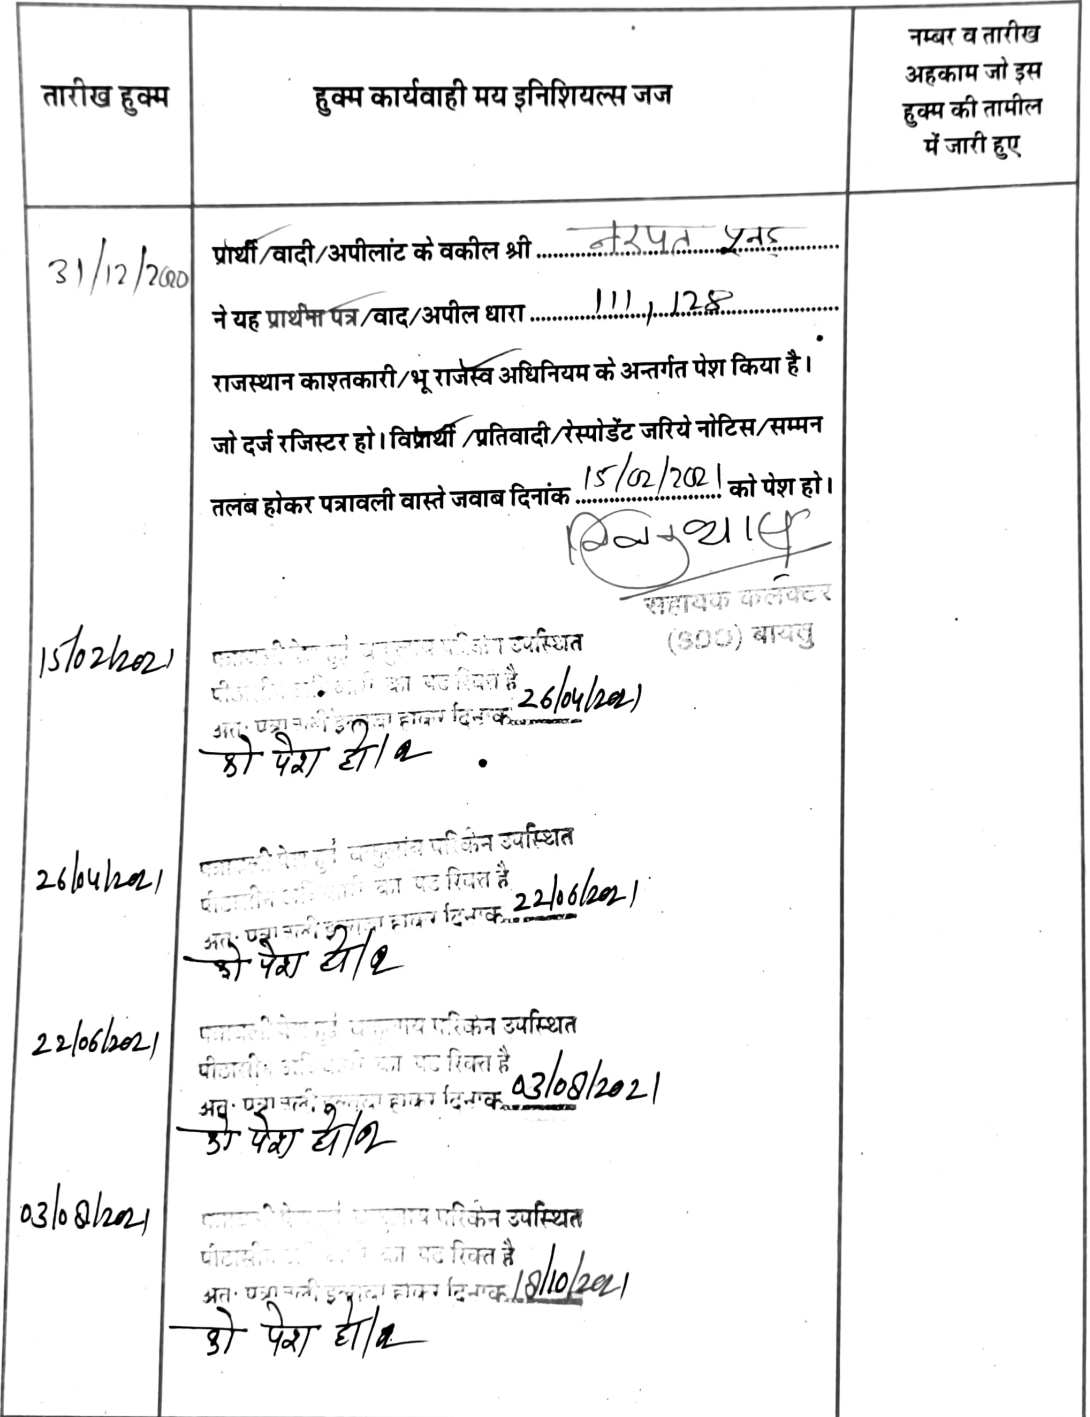 तारीख हुक्म
हुक्म कार्यवाही मय इनिशियल्स जज
नम्बर व तारीख
अहकाम जो इस
हुक्म की तामील
में जारी हुए
31/12/2020
प्रार्थी/वादी/अपीलांट के वकील श्री नरपत
ने यह प्रार्थना पत्र/वाद/अपील धारा 111, 128
राजस्थान काश्तकारी/भू राजस्व अधिनियम के अन्तर्गत पेश किया है।
जो दर्ज रजिस्टर हो। विप्रार्थी/प्रतिवादी/रेस्पोडेंट जरिये नोटिस/सम्मन
तलब होकर पत्रावली वास्ते जवाब दिनांक 15/02/2021 को पेश हो।
सहायक कलेक्टर
(SDO) बायतु
15/02/2021
पत्रावली पेश हुई उपस्थित
का पद रिक्त है
अतः पत्रावली होकर दिनांक 26/04/2021
को पेश हो।
26/04/2021
पत्रावली पेश हुई उपस्थित
का पद रिक्त है
अतः पत्रावली होकर दिनांक 22/06/2021
को पेश हो।
22/06/2021
पत्रावली पेश हुई उपस्थित
का पद रिक्त है
अतः पत्रावली होकर दिनांक 03/08/2021
को पेश हो।
03/08/2021
पत्रावली पेश हुई उपस्थित
का पद रिक्त है
अतः पत्रावली होकर दिनांक 18/10/2021
को पेश हो।